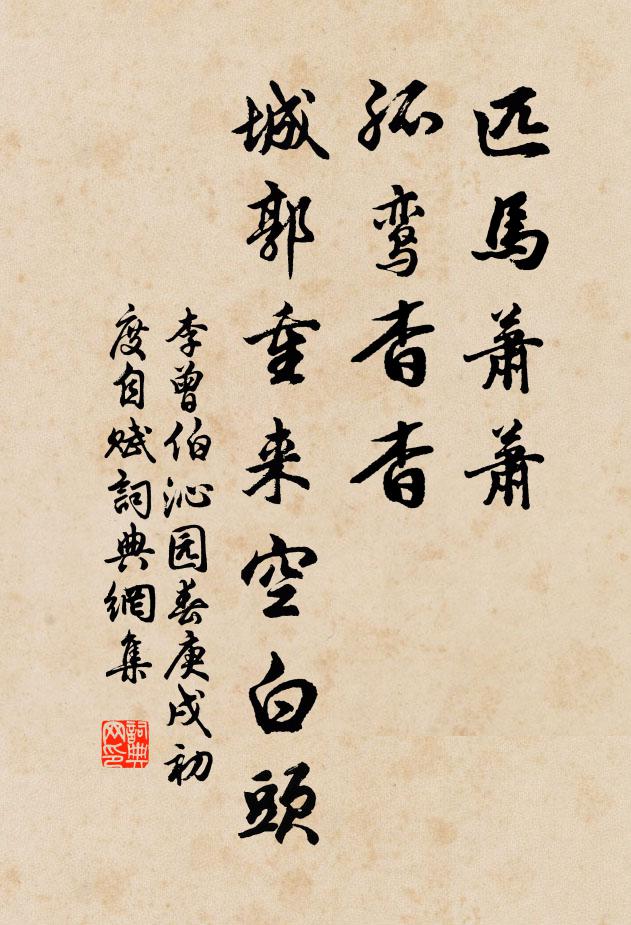 匹馬蕭蕭
孤鸾杳杳
城郭重来空白頭
李曾伯沁园春庚戌初
度自赋詞典網集
詞典
网印